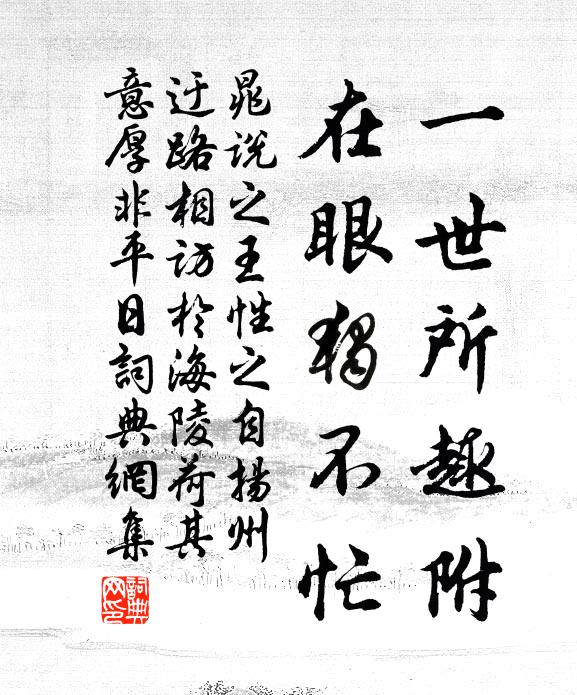 一世所趨附
在眼獨不忙
晁說之王性之自揚州
迂路相訪於海陵荷其
意厚非平日詞典網集
詞典
网印